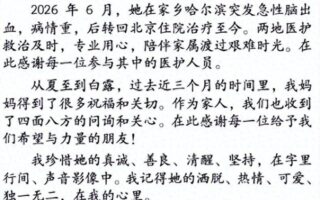 2026 年 6 月，她在家乡哈尔滨突发急性脑出
血，病情重，后转回北京住院治疗至今。两地医护
救治及时，专业用心，陪伴家属渡过艰难时光。在
此感谢每一位参与其中的医护人员。
从夏至到白露，过去近三个月的时间里，我妈
妈得到了很多祝福和关切。作为家人，我们也收到
了四面八方的问询和关心。在此感谢每一位给予我
们希望与力量的朋友！
我珍惜她的真诚、善良、清醒、坚持，在字里
行间、声音影像中。我记得她的洒脱、热情、可爱、
独一无二，在我的心里。